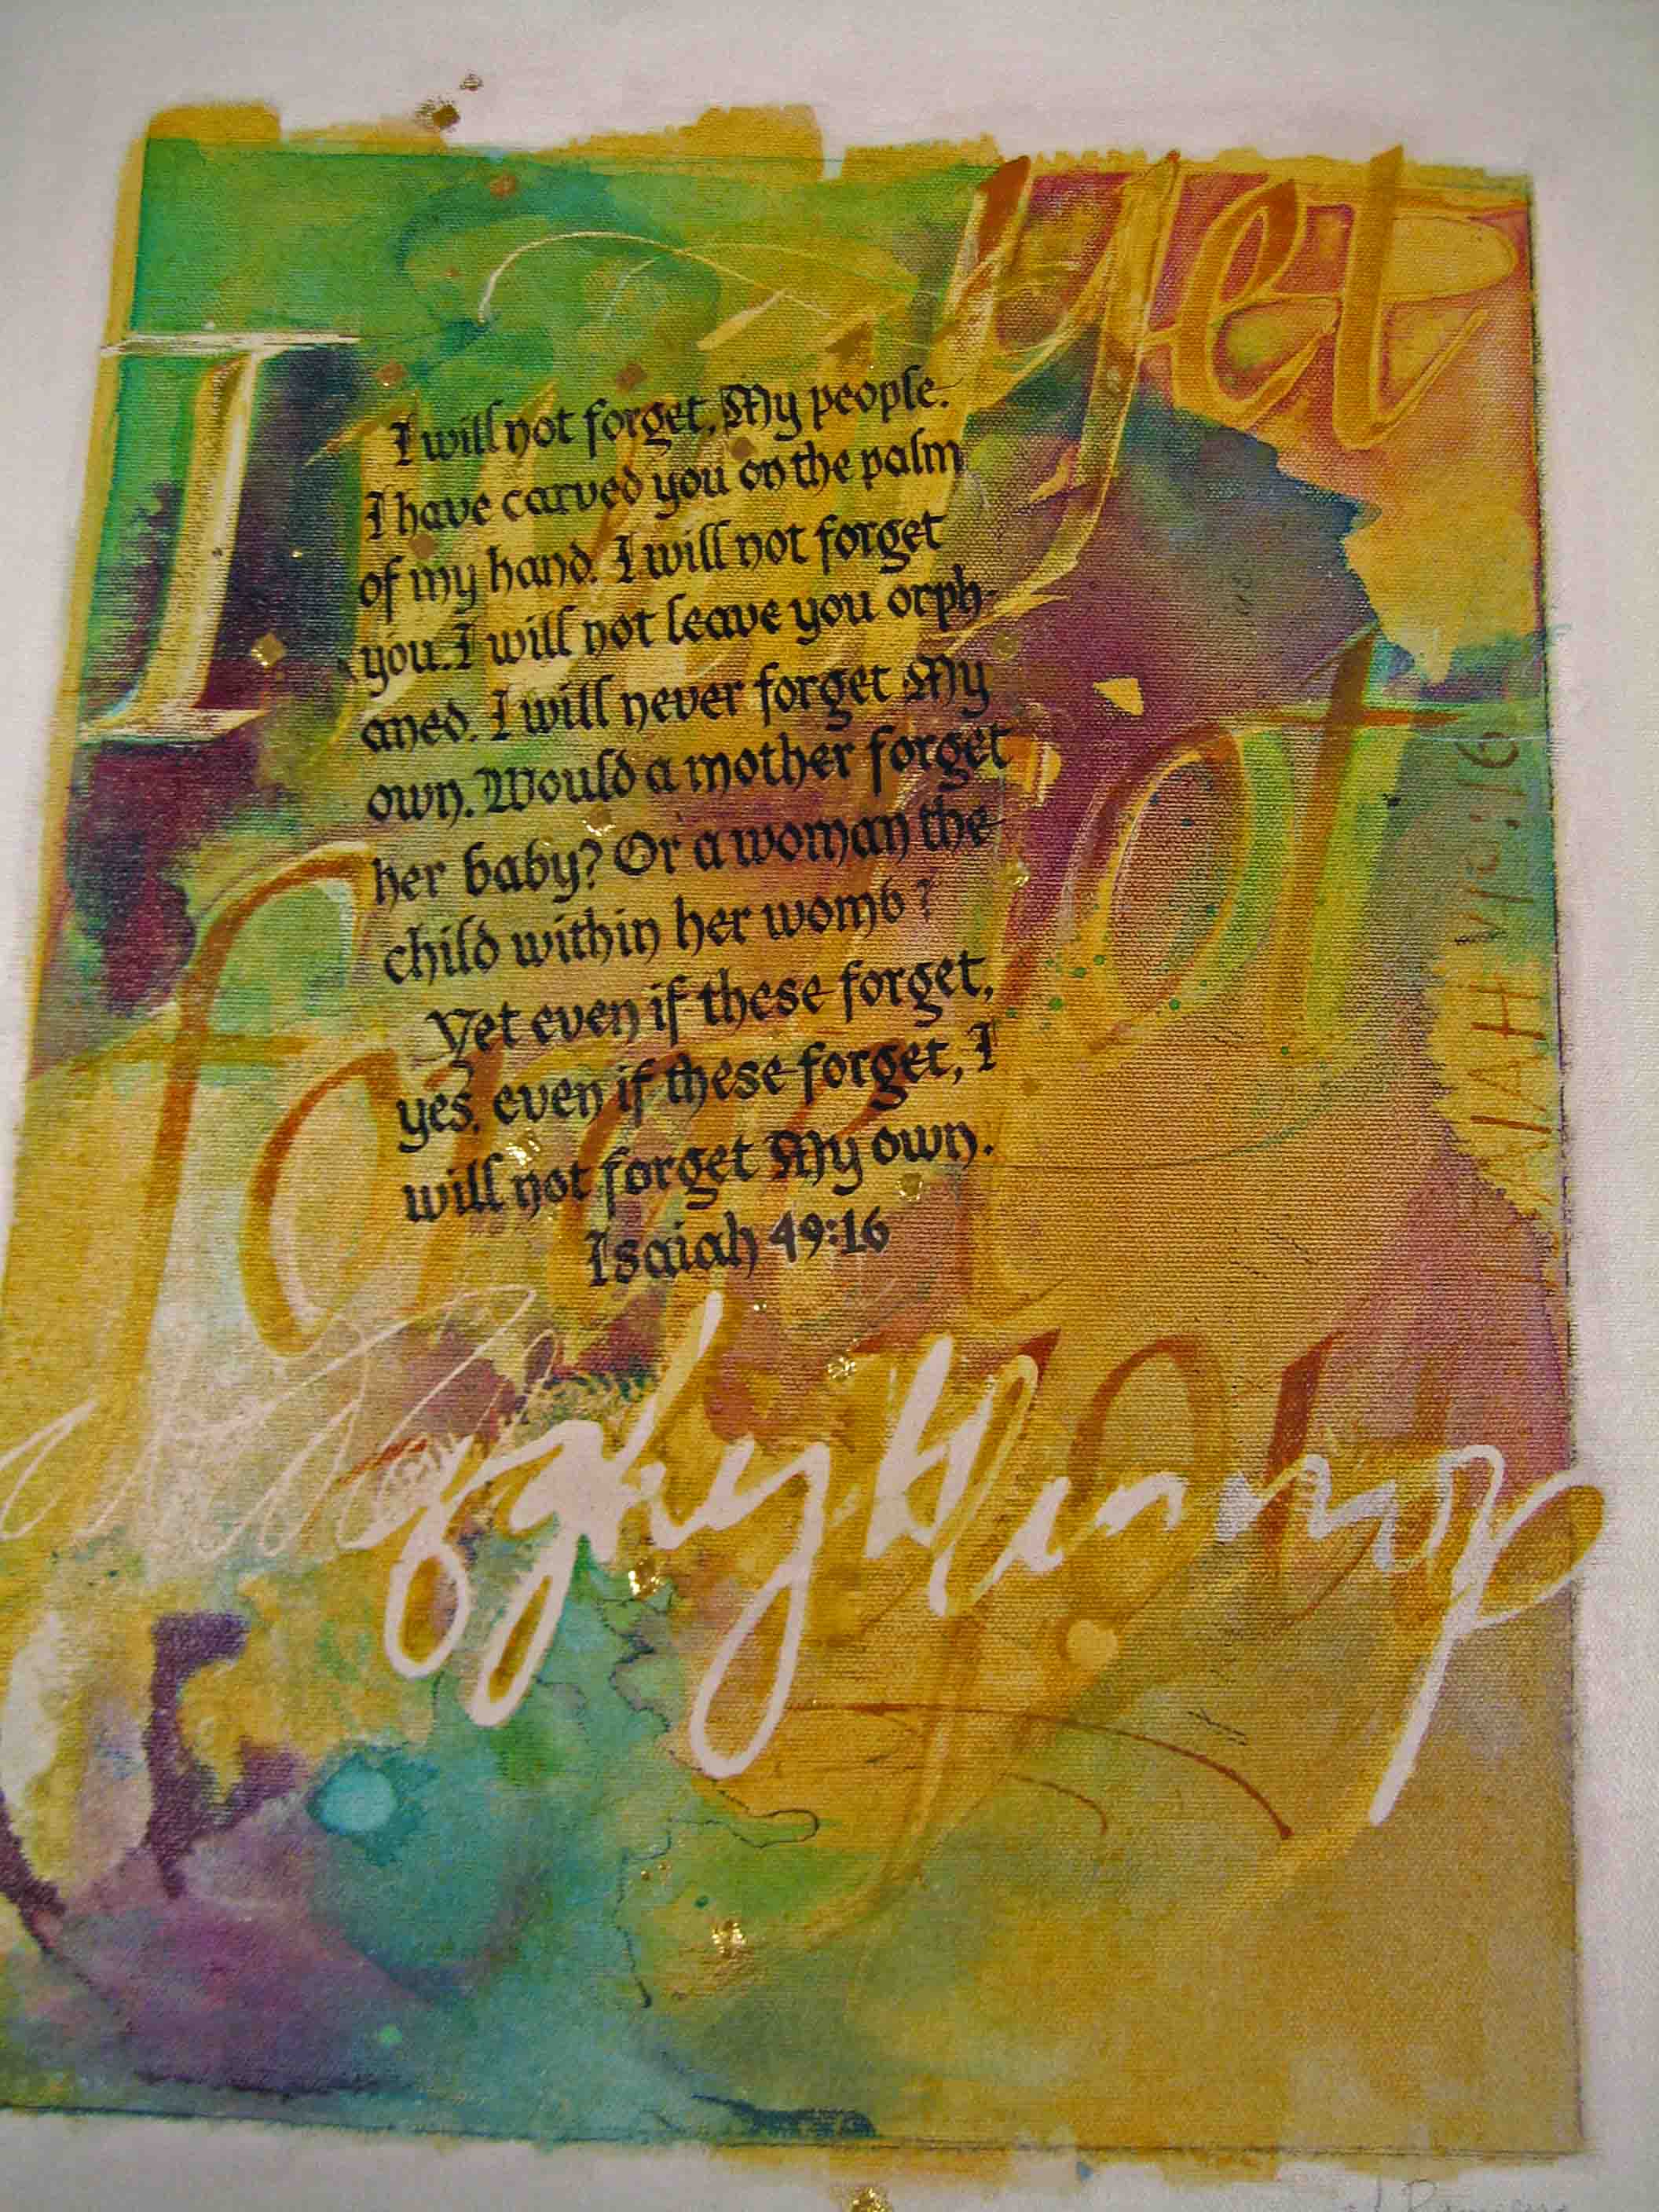 I will not forget, My people.
I have carved you on the palm
of my hand. I will not forget
you. I will not leave you orph-
aned. I will never forget My
own. Would a mother forget
her baby? Or a woman the
child within her womb?
Yet even if these forget,
yes, even if these forget, I
will not forget My own.
Isaiah 49:16
I will
yet
not
forget
you